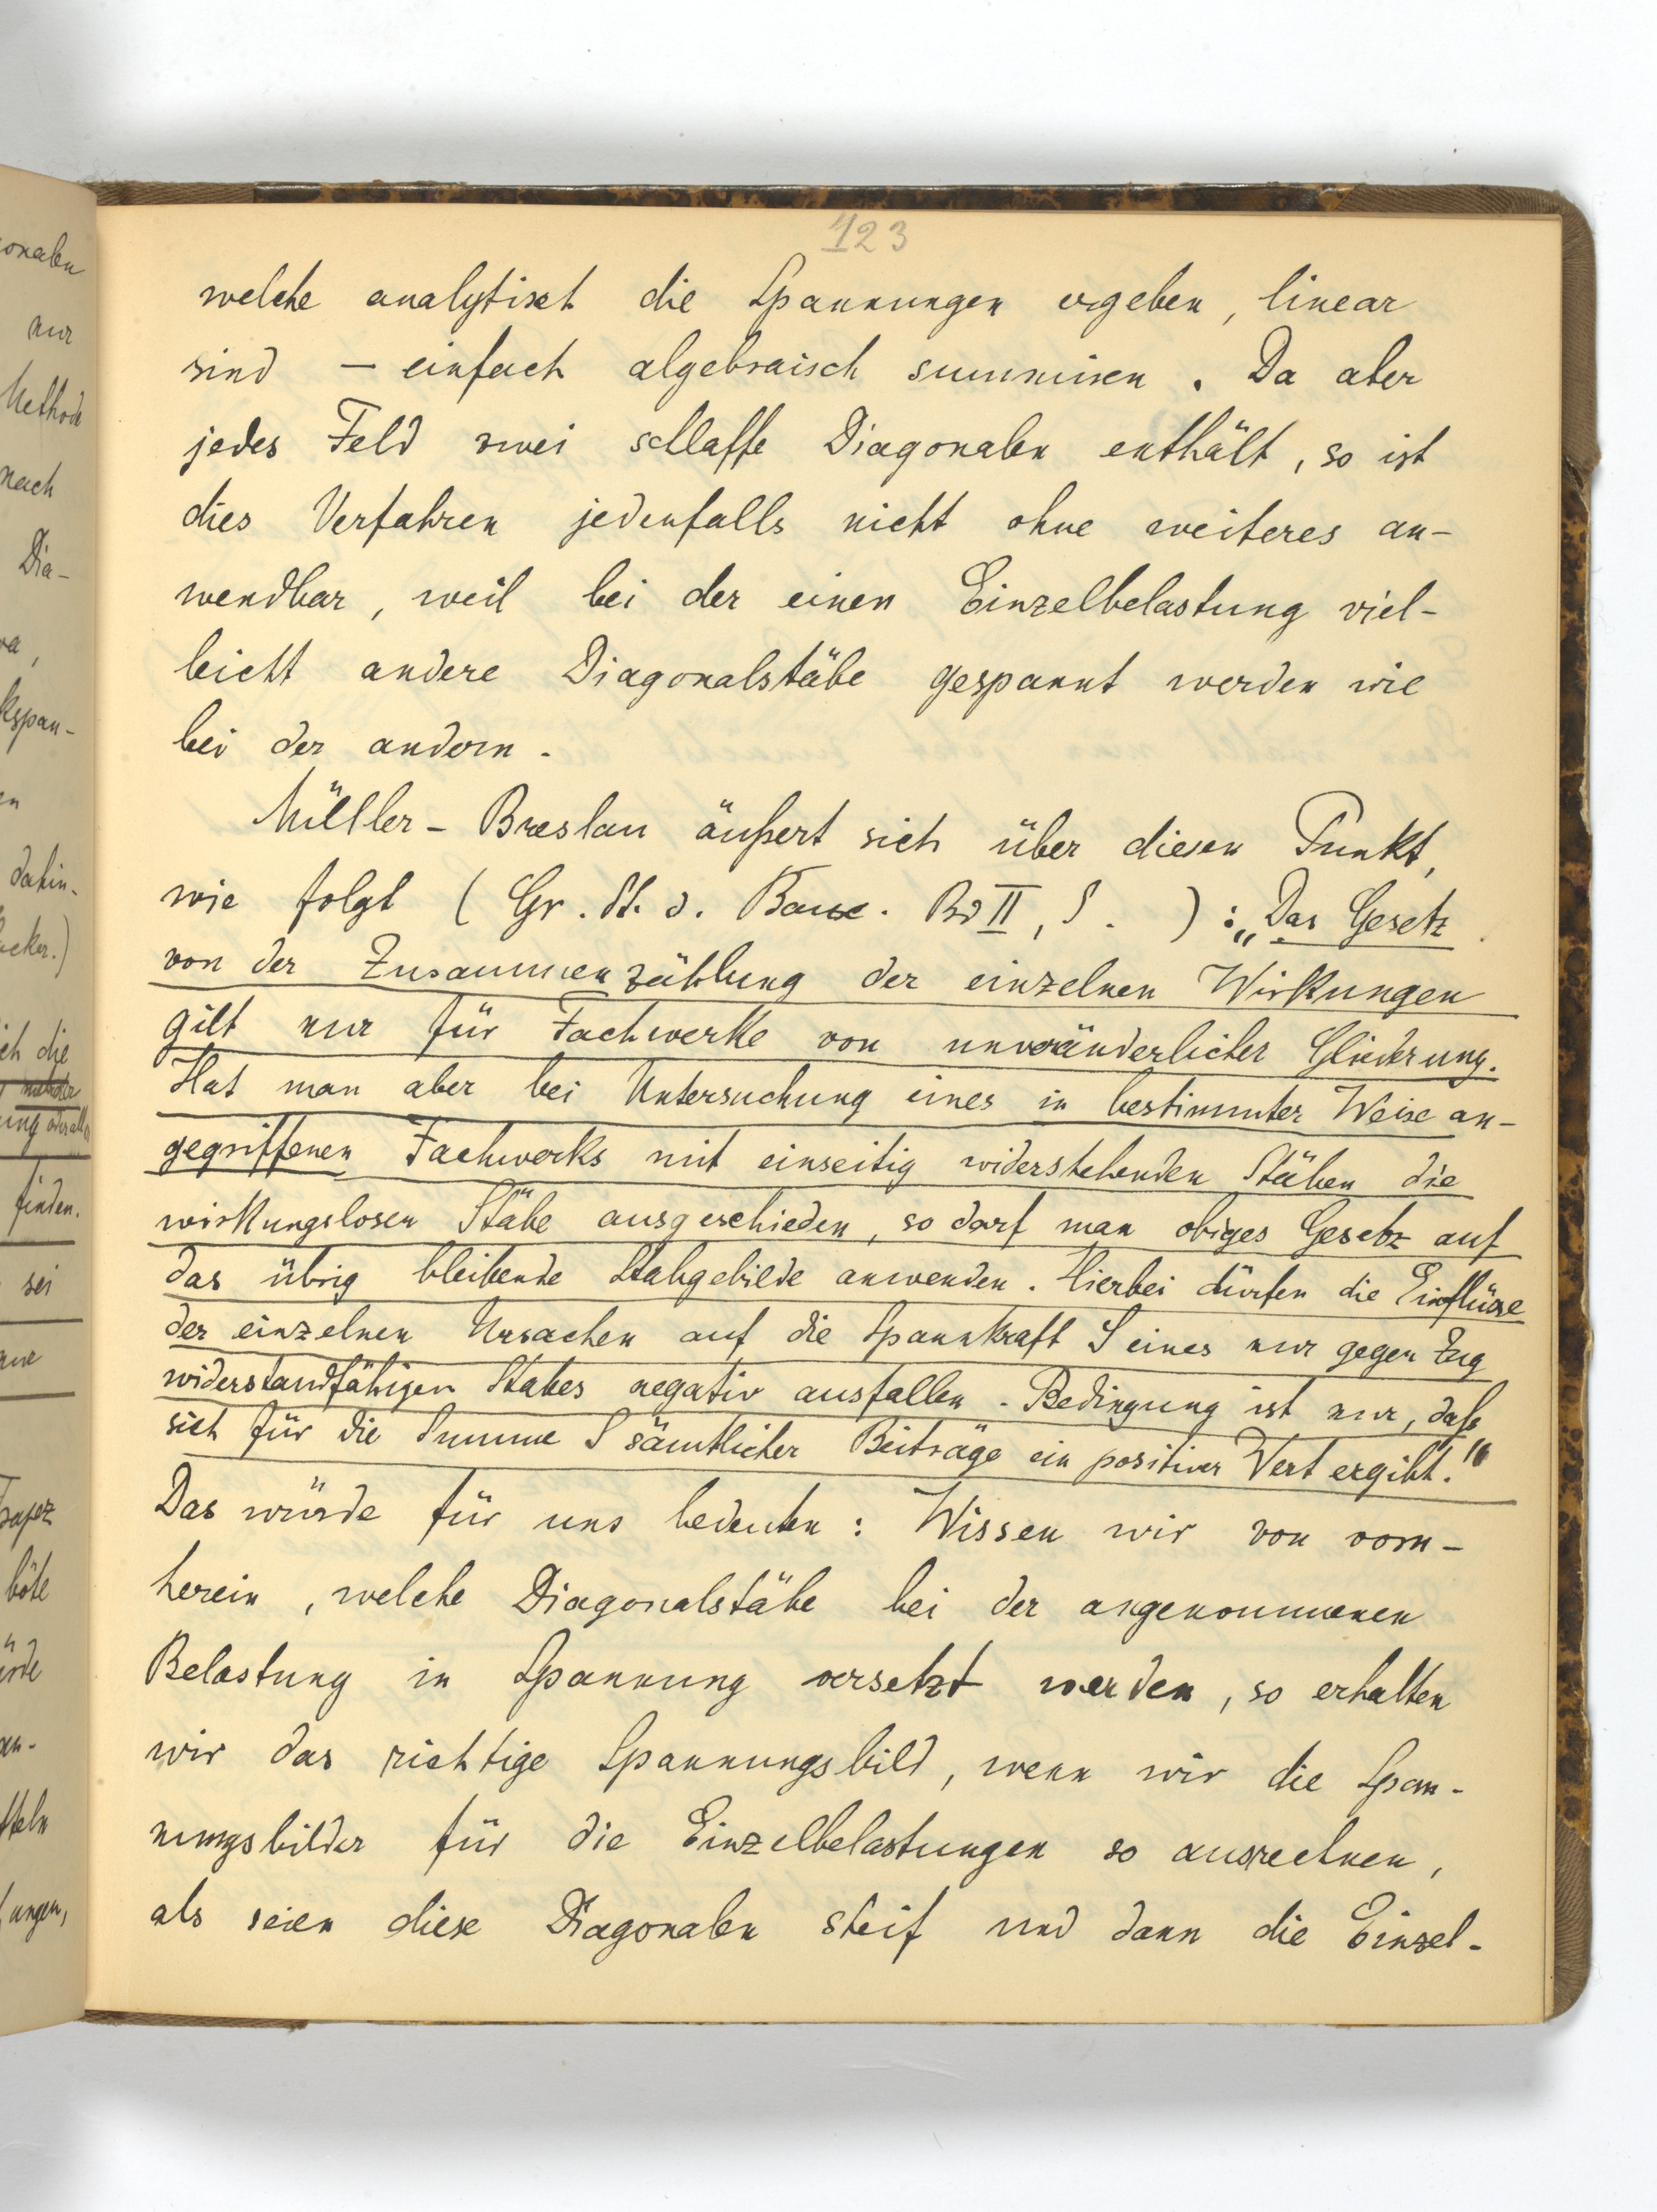 123
welche analytisch die Spannungen ergeben, linear
sind – einfach algebraisch summiren. Da aber
jedes Feld zwei schlaffe Diagonalen enthält, so ist
dies Verfahren jedenfalls nicht ohne weiteres an-
wendbar, weil bei der einen Einzelbelastung viel-
leicht andere Diagonalstäbe gespannt werden wie
bei der andern.
Müller-Breslau äußert sich über diesen Punkt,
wie folgt (Gr. St. d. Bauk. Bd II, S. ): „Das Gesetz
von der Zusammenzählung der einzelnen Wirkungen
gilt nur für Fachwerke von unveränderlicher Gliederung.
Hat man aber bei Untersuchung eines in bestimmter Weise an-
gegriffenen Fachwerks mit einseitig widerstehenden Stäben die
wirkungslosen Stäbe ausgeschieden, so darf man obiges Gesetz auf
das übrig bleibende Stabgebilde anwenden. Hierbei dürfen die Einflüsse
der einzelnen Ursachen auf die Spannkraft S eines nur gegen Zug
widerstandfähigen Stabes negativ ausfallen. Bedingung ist nur, daß
sich für die Summe S sämtlicher Beiträge ein positiver Wert ergibt."
Das würde für uns bedeuten: Wissen wir von vorn-
herein, welche Diagonalstäbe bei der angenommenen
Belastung in Spannung versetzt werden, so erhalten
wir das richtige Spannungsbild, wenn wir die Span-
nungsbilder für die Einzelbelastungen so ausrechnen,
als seien diese Diagonalen steif und dann die Einzel-